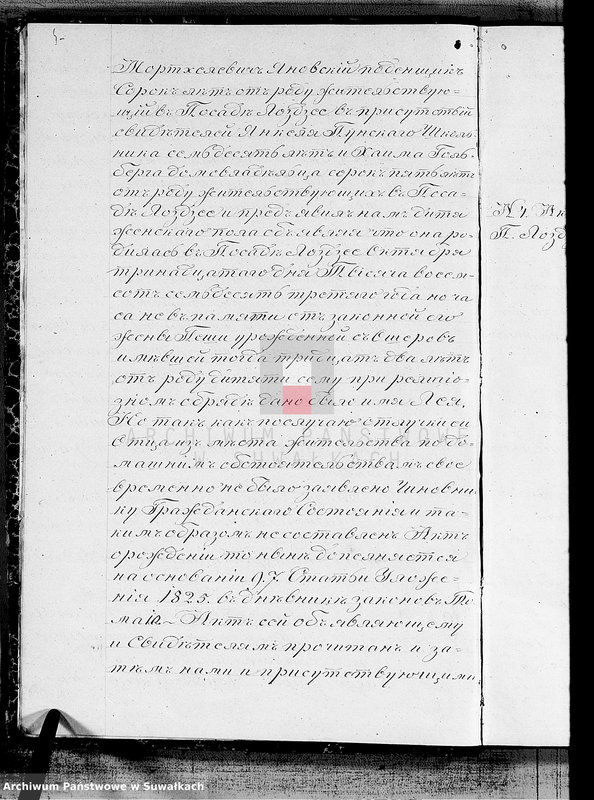 Мортхелевичъ Яновскій поденщикъ
Сорокъ лѣтъ отъ роду жительствую=
щій въ Посадѣ Лоздзее въ присутствіи
свидѣтелей Янкеля Пунскаго Школь=
ника семьдесятъ лѣтъ и ХаимаГоль=
берга домовладѣльца сорокъ пять лѣтъ
отъ роду жительствующихъ въ Поса=
дѣ Лоздзее и предъявилъ намъ дитя
женскаго пола объявляя что она ро=
дилась въ Посадѣ Лоздзее Октября
тринадцатаго дня Тысяча восем=
сотъ семьдесятъ третяго года но ча
са не въ памяти отъ законной его
жены Пеши урожденной
имѣвшей тогда тридцать два лѣтъ
отъ роду дитяти сему при религіо=
зномъ обрядѣ дано было имя Лея.
Но такъ какъ по случаю отлучки си
Отца изъ мѣста жительства по до=
машнимъ обстоятельствамъ свое
временно не было заявлено Чиновни
ку Гражданскаго Состоянія и та=
кимъ образомъ не составленъ Актъ
о рожденіи то нынѣ дополняется
на основаніи 97. Статьи Уложе=
нія 1825. въ дневникѣ законовъ То
ма Актъ сей объявляющему
и Свидѣтелямъ прочитанъ и за=
тѣмъ нами и присутствующими
N 1. Ак
П. Лозд
ARCHIWUM PAŃSTWOWE
W SUWAŁKACH
Archiwum Państwowe w Suwałkach